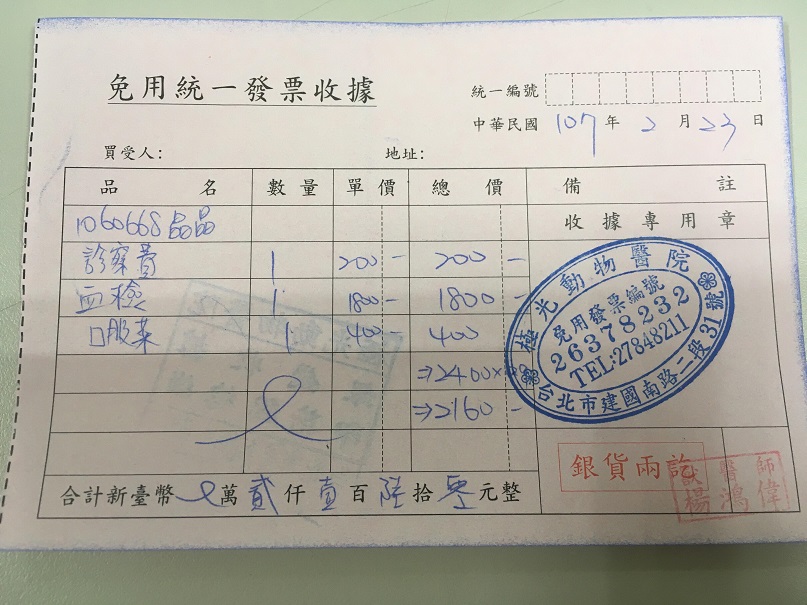 免用統一發票收據
統一編號
中華民國 107 年 2 月 23 日
買受人: 地址:
品名 數量 單價 總價 備註
1060668 晶晶 收據專用章
診察費 1 200- 200-
血檢 1 1800- 1800-
口服藥 1 400- 400
⇒2400×
⇒2160-
極光動物醫院
免用發票編號
26378232
TEL:27848211
台北市建國南路二段31號
銀貨兩訖
獸醫師
楊鴻偉
合計新臺幣 萬 貳 仟 壹 百 陸 拾 零 元整